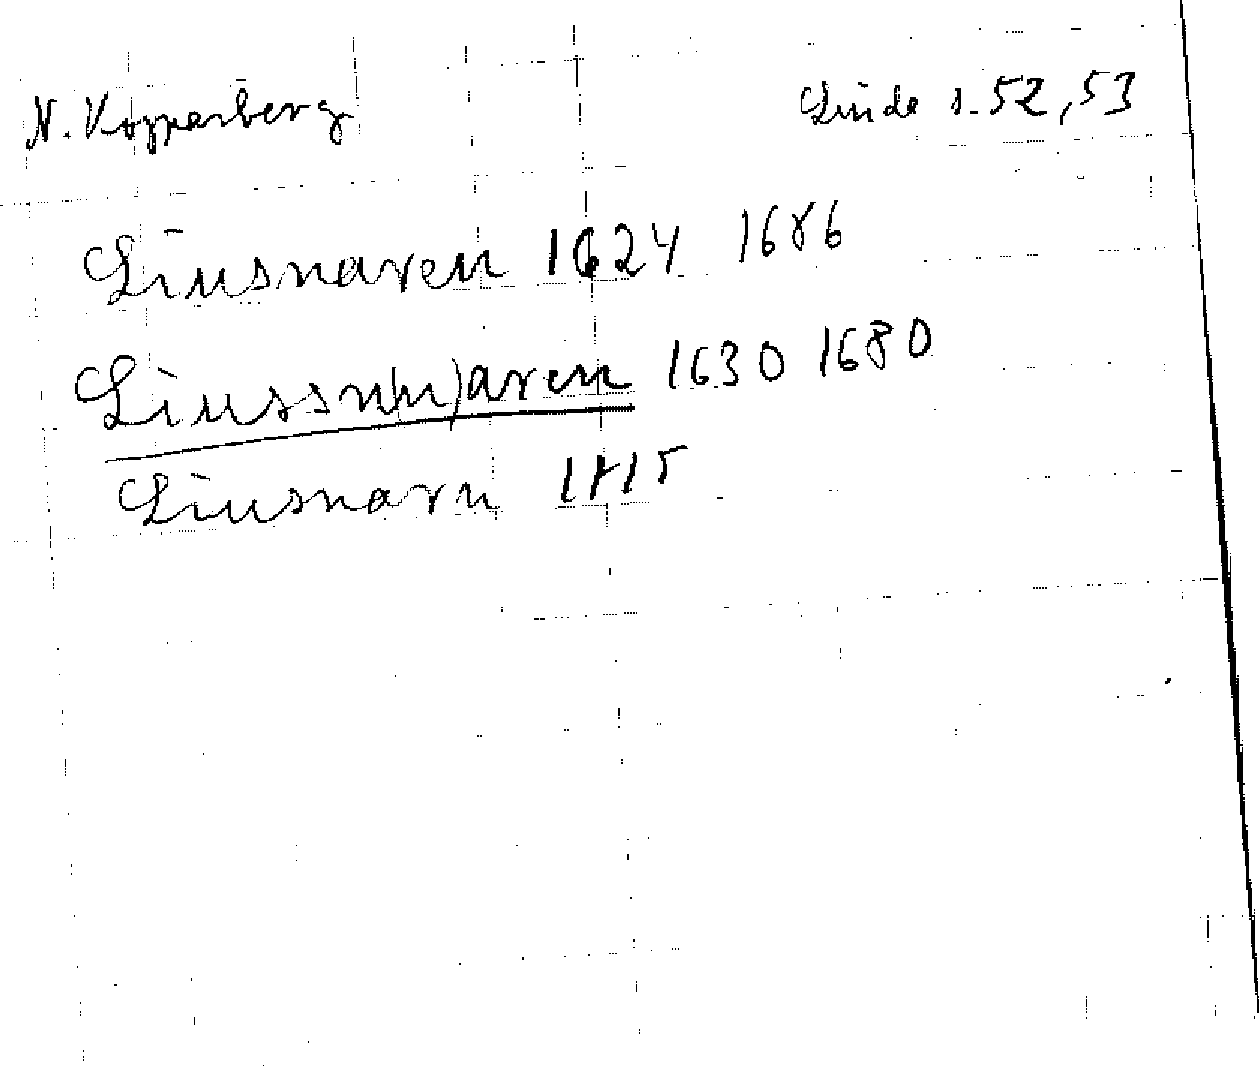 N. Kopparberg Linde s. 52, 53
Liusnaren 1624 1686
Liussn(n)aren 1630 1680
Liusnarn 1715